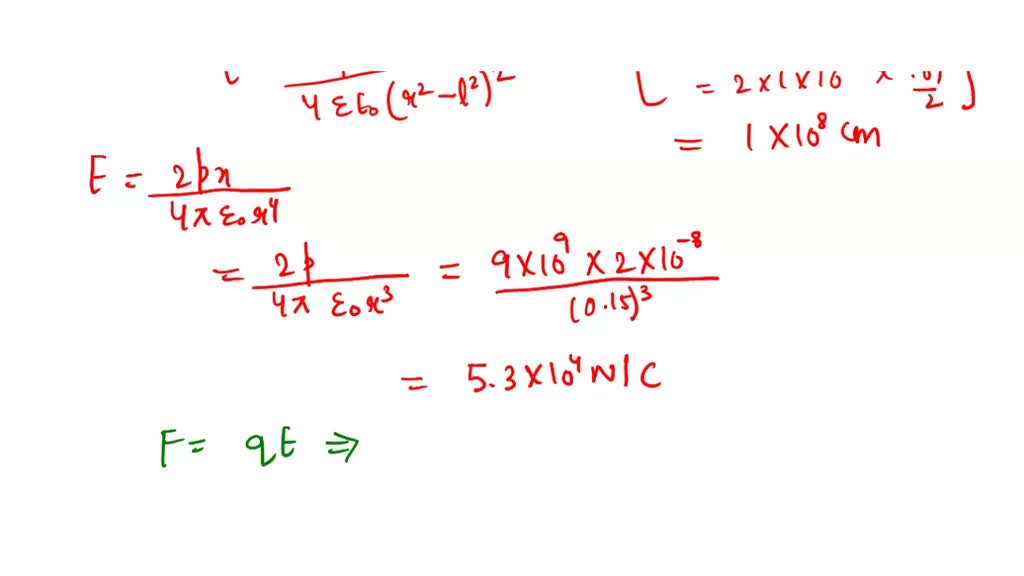 4 ε ε₀ (r² – l²)² [ = 2 × 1 × 10 × .01/2 ]
= 1 × 10⁸ cm
E = 2px / 4π ε₀ r⁴
= 2p / 4π ε₀ r³ = 9 × 10⁹ × 2 × 10⁻⁸ / (0.15)³
= 5.3 × 10⁴ N/C
F = qE ⇒